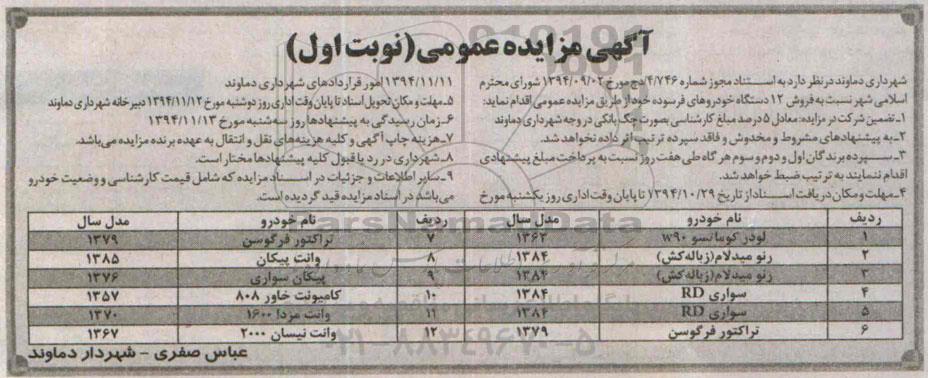 آگهی مزایده عمومی (نوبت اول)
شهرداری دماوند در نظر دارد به استناد مجوز شماره ۴/۷۴۶/دج مورخ ۱۳۹۴/۰۹/۰۲ شورای محترم
اسلامی شهر نسبت به فروش ۱۲ دستگاه خودروهای فرسوده خود از طریق مزایده عمومی اقدام نماید:
۱ـ تضمین شرکت در مزایده: معادل ۵ درصد مبلغ کارشناسی بصورت چک بانکی در وجه شهرداری دماوند
۲ـ به پیشنهادهای مشروط و مخدوش و فاقد سپرده ترتیب اثر داده نخواهد شد.
۳ـ سپرده برندگان اول و دوم و سوم هرگاه طی هفت روز نسبت به پرداخت مبلغ پیشنهادی
اقدام ننمایند به ترتیب ضبط خواهد شد.
۴ـ مهلت و مکان دریافت اسناد از تاریخ ۱۳۹۴/۱۰/۲۹ تا پایان وقت اداری روز یکشنبه مورخ
۱۳۹۴/۱۱/۱۱ امور قراردادهای شهرداری دماوند
۵ـ مهلت و مکان تحویل اسناد تا پایان وقت اداری روز دوشنبه مورخ ۱۳۹۴/۱۱/۱۲ دبیرخانه شهرداری دماوند
۶ـ زمان رسیدگی به پیشنهادها روز سه‌شنبه مورخ ۱۳۹۴/۱۱/۱۳
۷ـ هزینه چاپ آگهی و کلیه هزینه‌های نقل و انتقال به عهده برنده مزایده می‌باشد.
۸ـ شهرداری در رد یا قبول کلیه پیشنهادها مختار است.
۹ـ سایر اطلاعات و جزئیات در اسناد مزایده که شامل قیمت کارشناسی و وضعیت خودرو
می‌باشد در اسناد مزایده قید گردیده است.
ردیف نام خودرو مدل سال ردیف نام خودرو مدل سال
۱ لودر کوماتسو w۹۰ ۱۳۶۲ ۷ تراکتور فرگوسن ۱۳۷۹
۲ رنو میدلام (زباله‌کش) ۱۳۸۴ ۸ وانت پیکان ۱۳۸۵
۳ رنو میدلام (زباله‌کش) ۱۳۸۴ ۹ پیکان سواری ۱۳۷۶
۴ سواری RD ۱۳۸۴ ۱۰ کامیونت خاور ۸۰۸ ۱۳۵۷
۵ سواری RD ۱۳۸۴ ۱۱ وانت مزدا ۱۶۰۰ ۱۳۷۰
۶ تراکتور فرگوسن ۱۳۷۹ ۱۲ وانت نیسان ۲۰۰۰ ۱۳۶۷
عباس صفری - شهردار دماوند
ParsNamadData
۰۲۱-۸۸۳۴۹۶۷۰-۵